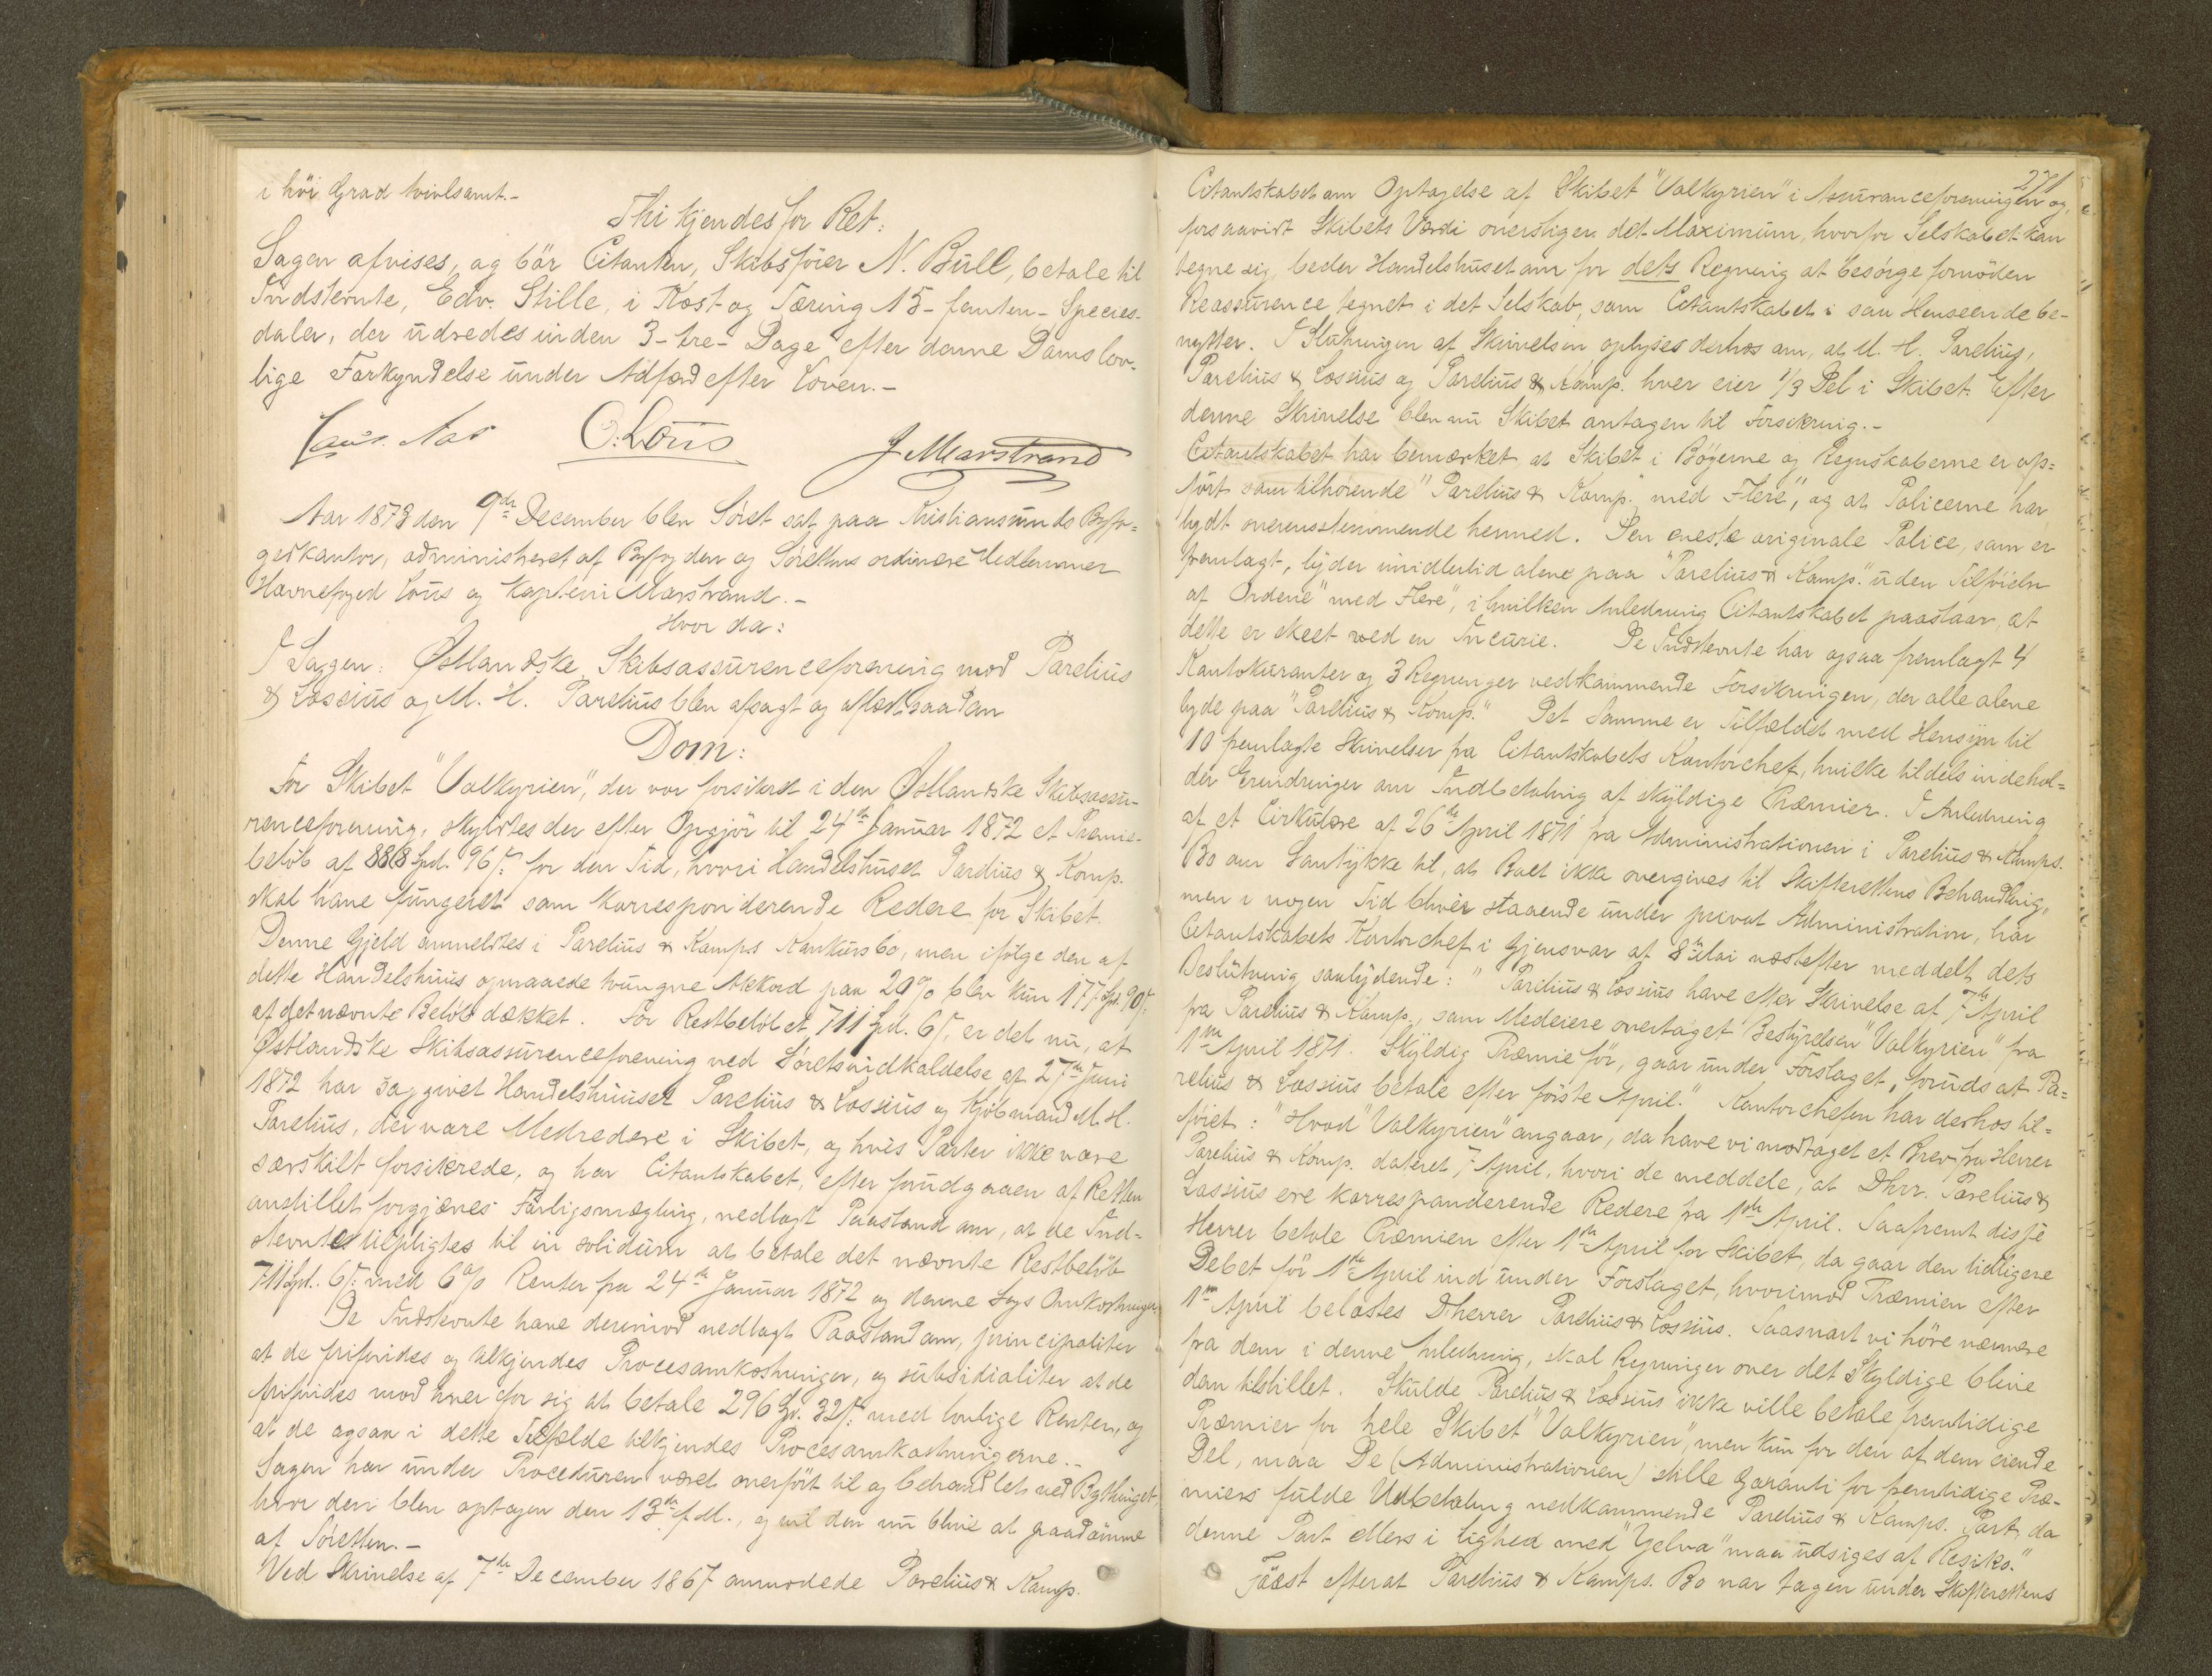 i höi Grad tvivlsamt.-
Thi kjendes for Ret:
Sagen afvises, og bör Citanten, Skibsförer N. Bull, betale til
Indstevnte, Edv. Stille, i Kost og Tæring 15- femten- Species-
daler, der udredes inden 3- tre- Dage efter denne Doms lov-
lige Forkyndelse under Adfærd efter Loven.-
O. Lous J Marstrand
Aar 1873 den 9de December blev Söret sat paa Kristiansunds Byfo-
gedkontor, administreret af Byfogden og Sörettens ordinære Medlemmer
Havnefoged Lous og Kaptein Marstrand.-
Hvor da:
I Sagen: Østlandske Skibsassuranceforening mod Parelius
& Lossius og M. H. Parelius blev afsagt og aflæst saadan
Dom:
For Skibet "Valkyrien", der var forsikret i den Østlandske Skibsassu-
renceforening, skyldtes der efter Opgjör til 24de Januar 1872 et Præmie-
belöb af 888 Spd. 96 s. for den Tid, hvori Handelshuset Parelius & Komp.
skal have fungeret som korresponderende Redere for Skibet.
Denne Gjeld anmeldtes i Parelius & Komps Konkursbo, men ifölge den af
dette Handelshuus opnaaede tvungne Akkord paa 20% blev kun 177 Spd. 90 s.
af det nævnte Belöb dækket. For Restbelöbet, 711 Spd. 6 s. er det nu, at
Østlandske Skibsassurenceforening ved Söretsindkaldelse af 27de Juni
1872 har saggivet Handelshuuset Parelius & Lossius og Kjöbmand M. H.
Parelius, der vare Medredere i Skibet, og hvis Parter ikke vare
særskilt forsikrede, og har Citantskabet, efter forudgaaen af Retten
anstillet forgjæves Forligsmægling, nedlagt Paastand om, at de Ind-
stevntes tilpligtes til in solidum at betale det nævnte Restbelöb
711 Spd. 6 s. med 6% Renter fra 24de Januar 1872 og denne Sags Omkostninger.
De Indstevnte have derimod nedlagt Paastand om, principaliter
at de frifindes og tilkjendes Procesomkostninger, og subsidialiter at de
frifindes mod hver for sig at betale 296 Spd. 32 s. med lovlige Renter, og
at de ogsaa i dette Tilfælde tilkjendes Procesomkostningerne.-
Sagen har under Proceduren været overfört til og behandlet ved Bythinget,
hvor den blev optagen den 13de f. M., og vil den nu blive at paadömme
af Söretten.-
Ved Skrivelse af 7de December 1867 anmodede Parelius & Komp.
271
Citantskabet om Optagelse af Skibet "Valkyrien" i Assuranceforeningen og,
forsaavidt Skibets Værdi overstiger det Maximum, hvorfor Selskabet kan
tegne sig, beder Handelshuset om for dets Regning at besörge fornöden
Reassurence tegnet i det Selskab, som Citantskabet i saa Henseende be-
nytter. I Slutningen af Skrivelsen oplyses derhos om, at M. H. Parelius,
Parelius & Lossius og Parelius & Komp. hver eier 1/3 Del i Skibet. Efter
denne Skrivelse blev nu Skibet antagen til Forsikring.-
Citantskabet har bemærket, at Skibet i Bögerne og Regnskaberne er op-
fört som tilhörende "Parelius & Komp." med Flere", og at Policerne har
lydt overensstemmende hermed. Den eneste originale Police, som er
fremlagt, lyder imidlertid alene paa "Parelius & Komp." uden Tilföieln
af Ordene "med Flere", i hvilken Anledning Citantskabet paastaar, at
dette er skeet ved en Incurie. De Indstevnte har ogsaa fremlagt 4
Kontokuranter og 3 Regninger vedkommende Forsikringen, der alle alene
lyde paa "Parelius & Komp." Det Samme er Tilfældet med Hensyn til
10 fremlagte Skrivelser fra Citantskabets Kontorchef, hvilke tildels indehol-
der Erindringer om Indbetaling af skyldige Præmier. I Anledning
af et Cirkulære af 26de April 1871 fra Administrationen i Parelius & Komps.
Bo om Samtykke til, at Boet ikke overgives til Skifterettens Behandling,
men i nogen Tid bliver staaende under privat Administration, har
Citantskabets Kontorchef i Gjensvar af 8de Mai næstefter meddelt dets
Beslutning saalydende: "Parelius & Lossius have efter Skrivelse af 7de April
fra Parelius & Komp., som Medeiere overtaget Bestyrelsen "Valkyrien" fra
1ste April 1871. Skyldig Præmie för, gaar under Forslaget, foruds at Pa-
relius & Lossius betale efter förste April." Kontorchefen har derhos til-
föiet: "Hvad "Valkyrien" angaar, da have vi modtaget et Brev fra Herrer
Parelius & Komp. dateret 7 April, hvori de meddele, at Dhrr. Parelius &
Lossius ere korresponderende Redere fra 1ste April. Saafremt disse
Herrer betale Præmien efter 1ste April for Skibet, da gaar den tidligere
Debet för 1ste April ind under Forslaget, hvorimod Præmien efter
1ste April belastes Dherrer Parelius & Lossius. Saasnart vi höre nærmere
fra dem i denne Anledning, skal Regninger over det Skyldige blive
dem tilstillet. Skulde Parelius & Lossius ikke ville betale fremtidige
Præmier for hele Skibet "Valkyrien", men kun for den af dem eiende
Del, maa De (Administrationen) stille Garanti for fremtidige Præ-
miers fulde Udbetaling vedkommende Parelius & Komps. Part, da
denne Part ellers i Lighed med "Gelva" maa udsiges af Risiko."
Först efterat Parelius & Komps. Bo var tagen under Skifterettens